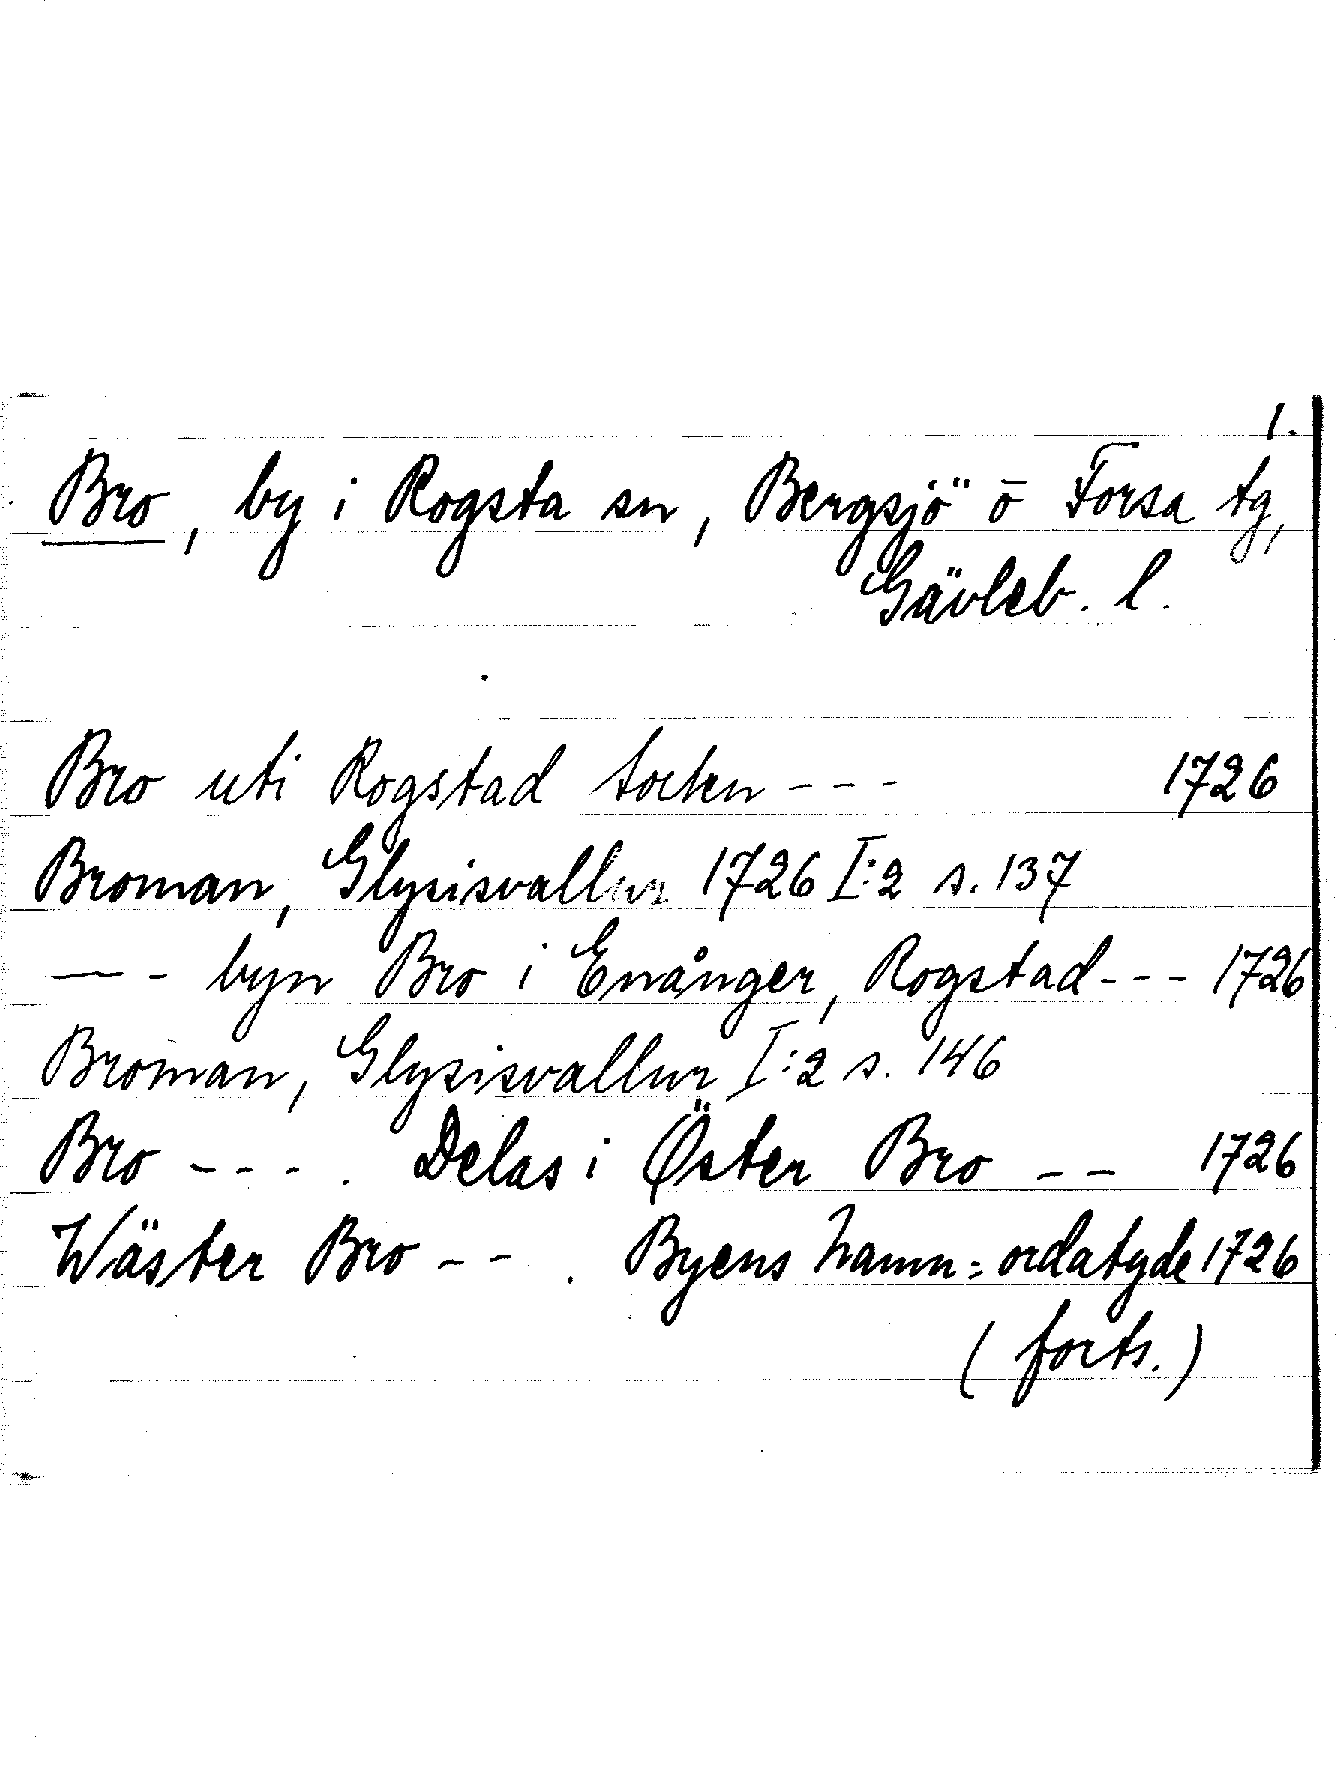 1.
Bro, by i Rogsta sn, Bergsjö o Forsa tg,
Gävleb. l.
Bro uti Rogstad socken - - - 1726
Broman, Glysisvallur 1726 I:2 s. 137
— - byn Bro i Enånger, Rogstad - - - 1726
Broman, Glysisvallur I:2 s. 146
Bro - - - . Delas i Öster Bro - - 1726
Wäster Bro - - . Byens hamn = ordatyde 1726
(forts.)